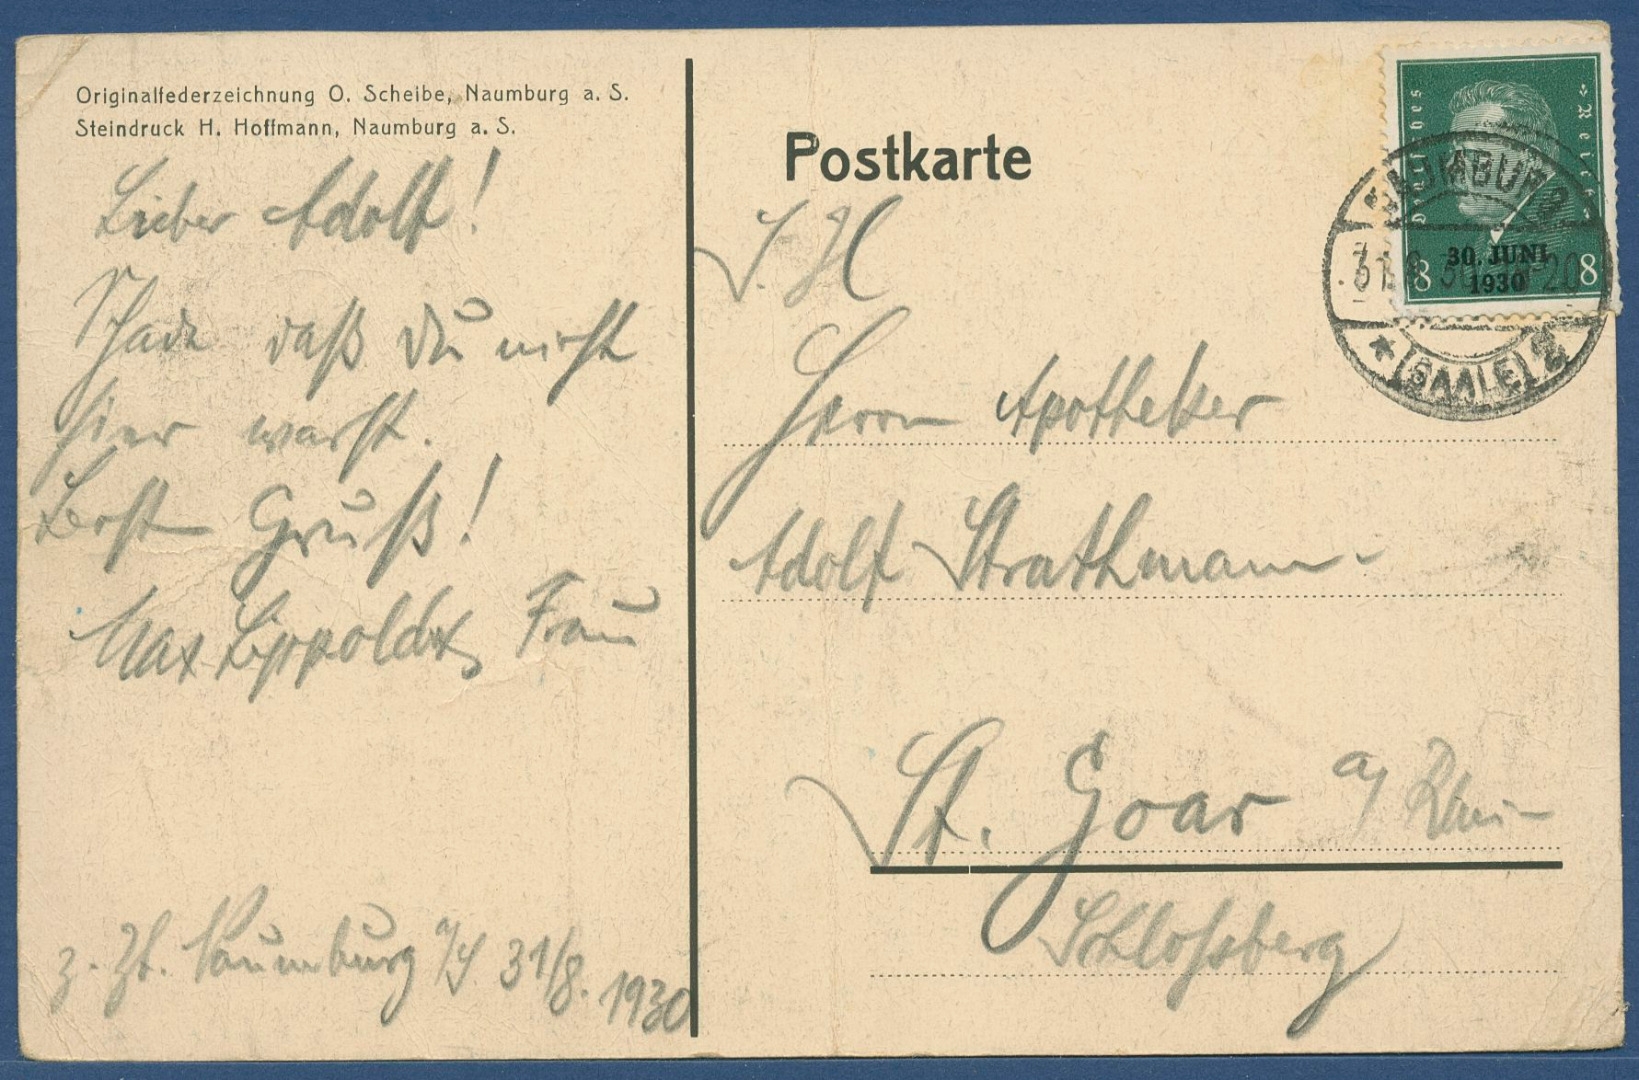 Originalfederzeichnung O. Scheibe, Naumburg a. S.
Steindruck H. Hoffmann, Naumburg a. S.
Lieber Adolf!
Schade daß Du nicht
hier warst.
Gruß!
Max Lippoldt Frau
z. Zt. Naumburg a/S 31/8. 1930
Postkarte
Deutsches Reich
8 8
30. JUNI
1930
NAUMBURG
(SAALE) 2
S. H
Herrn Apotheker
Adolf Strathmann
St. Goar a/ Rhein
Schloßberg